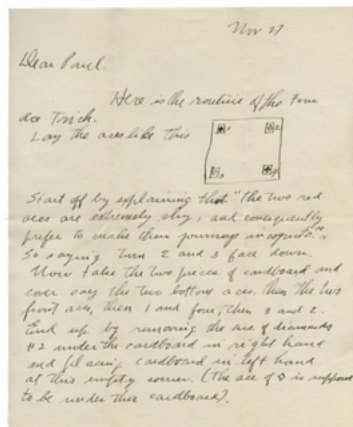 Nov 27
Dear Paul.
Here is the routine of the Four
Ace Trick.
Lay the aces like this
1 2
3 4
Start off by explaining that "the two red
aces are extremely shy, and consequently
prefer to make their journeys incognito."
So saying turn 2 and 3 face down.
Now take the two pieces of cardboard and
cover say the two bottom aces, then the two
front aces, then 1 and four, then 3 and 2.
End up by removing the ace of diamonds
#2 under the cardboard in right hand
and placing cardboard in left hand
at this empty corner. (The ace of ◇ is supposed
to be under this cardboard).